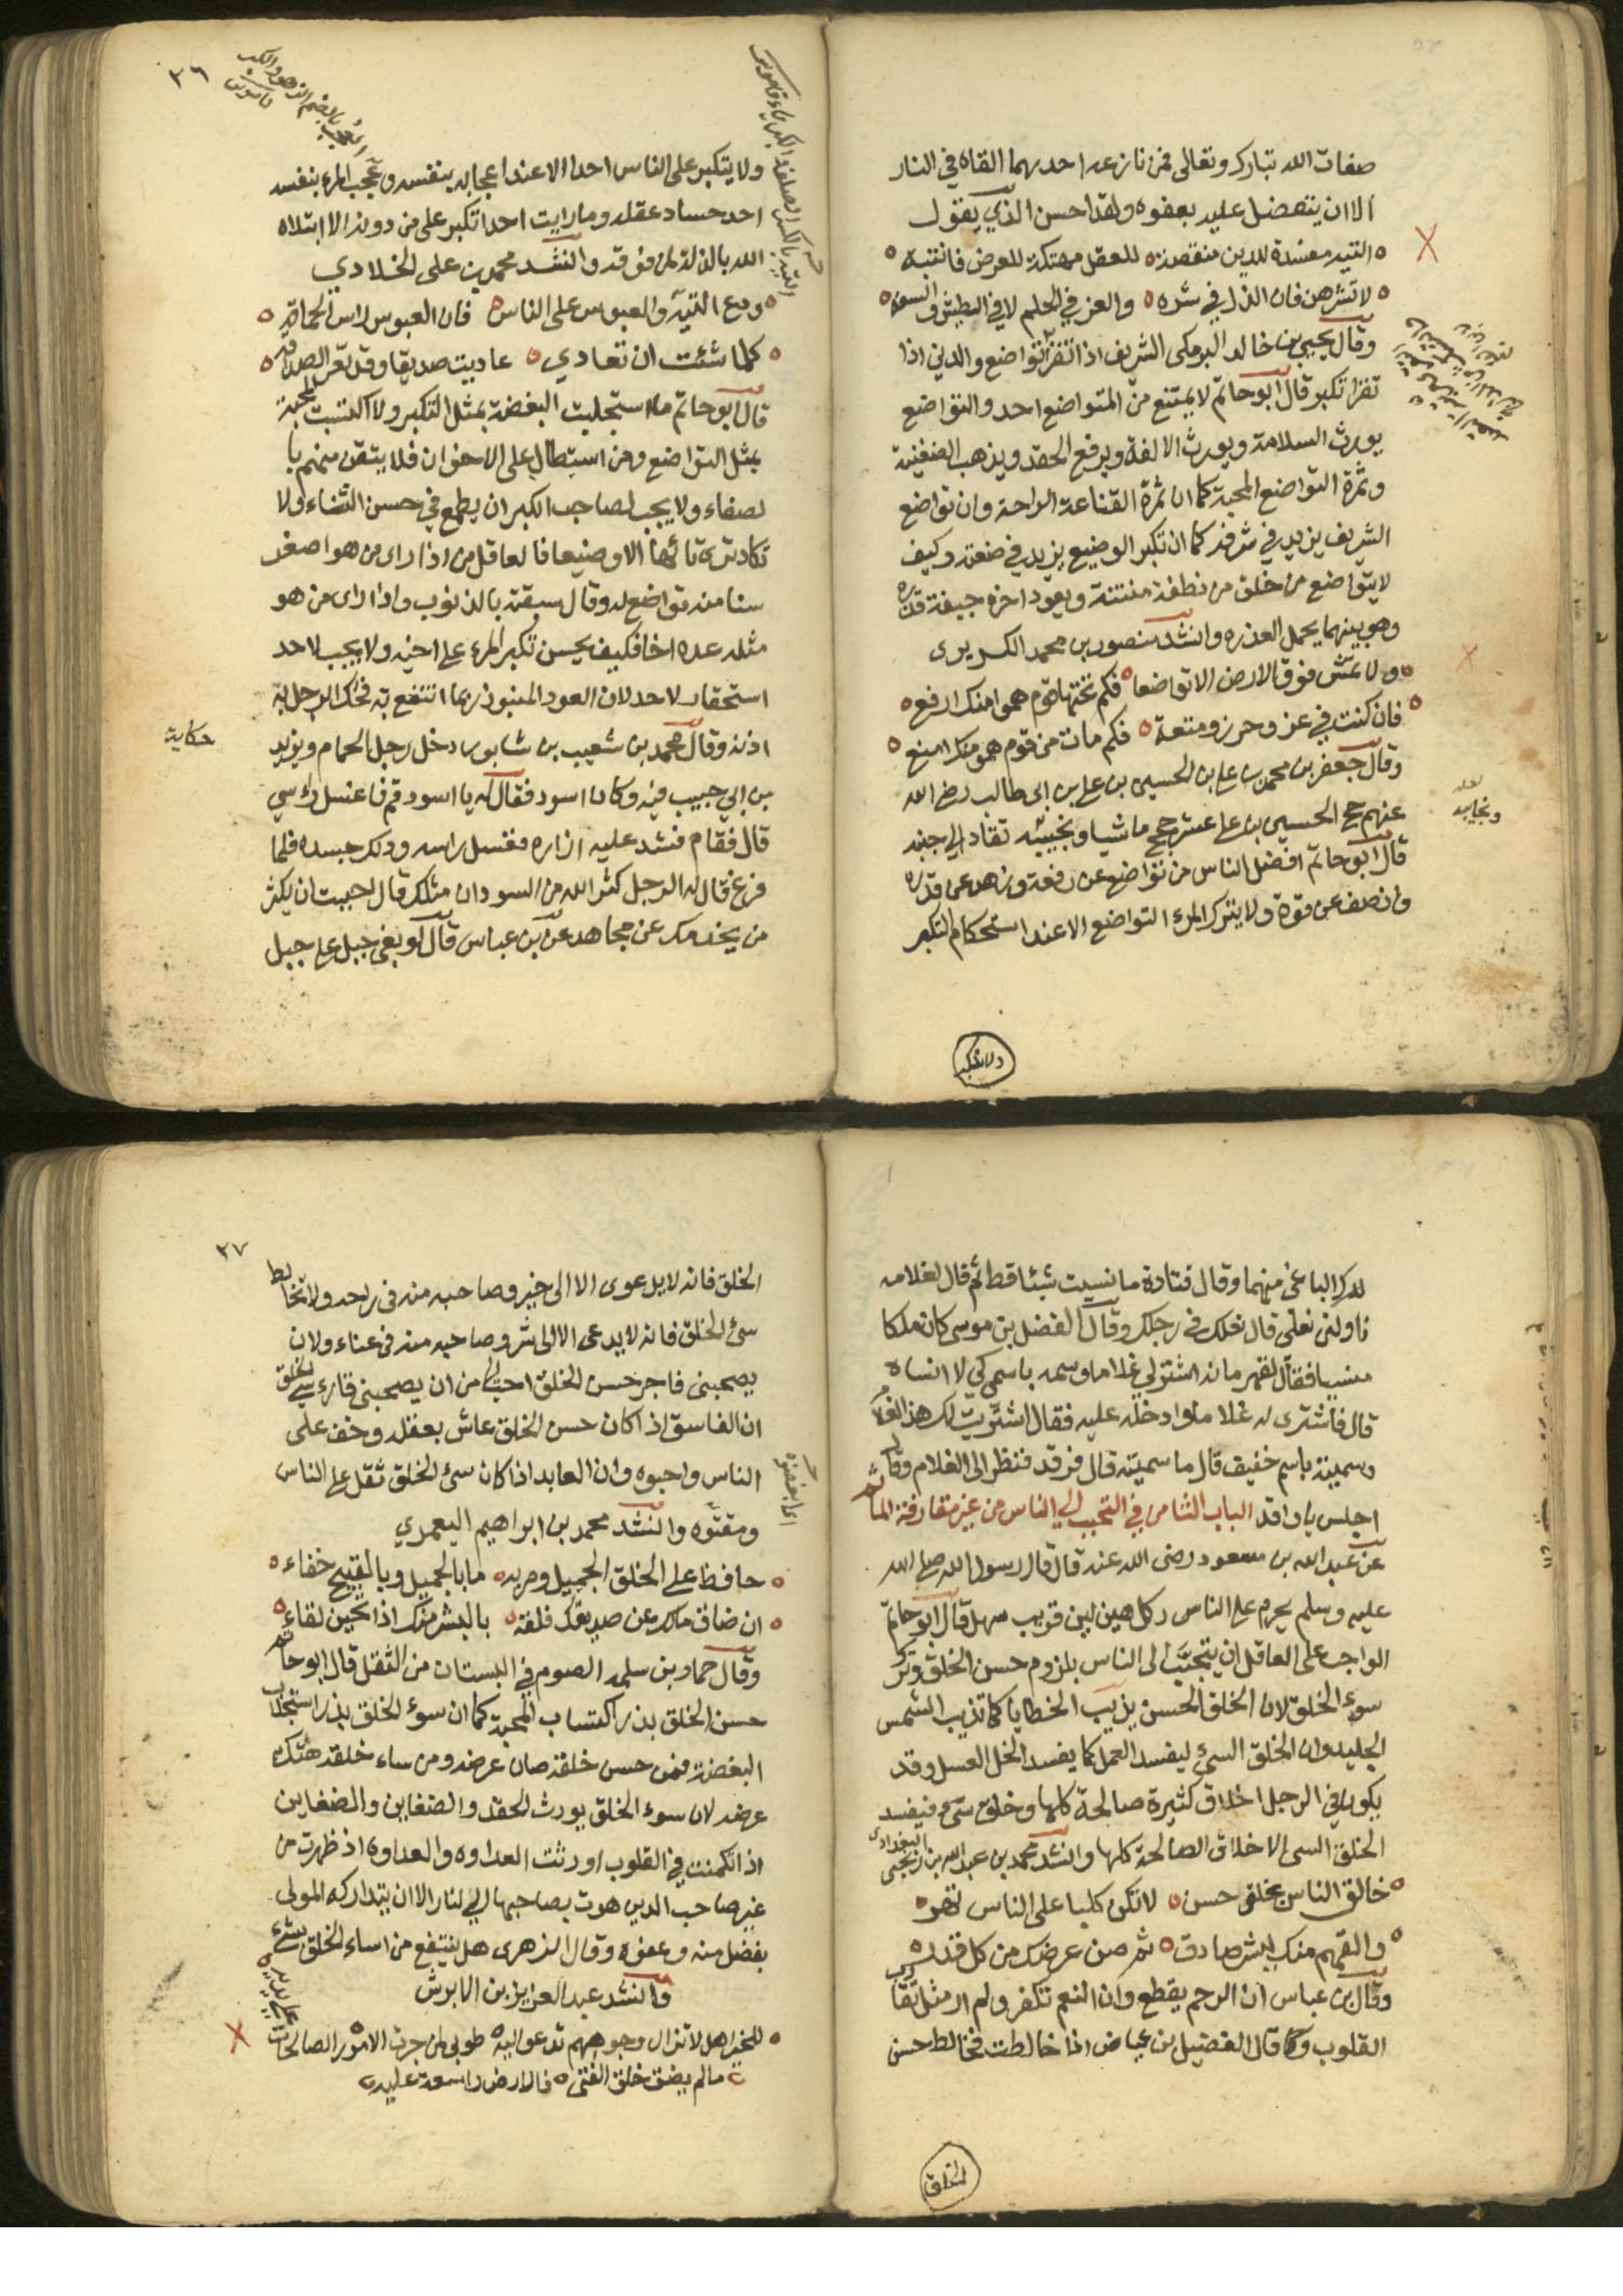 صفات الله تبارك وتعالى فمن نازعه احديهما القاه في النار
الا ان يتفضل عليه بعفوه ولقد احسن الذي يقول
التيه مفسدة للدين منقصة للعقل مهتكة للعرض فانتبه
لا تشرهن فان الذل في شره والعز في الحلم لا في البطش والسفه
وقال يحيى بن خالد البرمكى الشريف اذا تقرأ تواضع والدني اذا
تقرا تكبر قال ابو حاتم لا يمتنع من المتواضع احد والتواضع
يورث السلامة ويورث الالفة ويرفع الحقد ويذهب الضغينة
وثمرة التواضع المحبة كما ان ثمرة القناعة الراحة وان تواضع
الشريف يزيد في شرفه كما ان تكبر الوضيع يزيد في ضعته وكيف
لا يتواضع من خلق من نطفة منتنة ويعود اخره جيفة قذره
وهو بينهما يحمل العذره وانشد منصور بن محمد الكريرى
ولا تمش فوق الارض الا تواضعا فكم تحتها قوم هموا منك ارفع
فان كنت في عز وحرز ومنعة فكم مات من قوم هم منك امنع
وقال جعفر بن محمد بن على بن الحسين بن على بن ابى طالب رضى الله
عنهم حج الحسين بن على عشر حجج ماشيا ونجيبته تقاد الى جنبه
قال ابو حاتم افضل الناس من تواضع عن رفعة وزهد عن قدره
وانصف عن قوة ولا يترك المرء التواضع الا عند استحكام التكبر
لعله
ونجايبه
ولا يتكبر
٣٦
ولا يتكبر على الناس احدا الا عند اعجابه بنفسه وعجب المرء بنفسه
احد حساد عقله وما رايت احدا تكبر على من دونه الا ابتلاه
الله بالذلة لمن فوقه وانشد محمد بن على الخلادي
ودع التيه والعبوس على الناس فان العبوس راس الحماقه
كلما شئت ان تعادي عاديت صديقا وقد تعز الصداقه
قال ابو حاتم ما استجلبت البغضة بمثل التكبر ولا اكتسبت المحبة
بمثل التواضع ومن استطال على الاخوان فلا يثقن منهم با
لصفاء ولا يجب لصاحب الكبر ان يطمع في حسن الثناء ولا
تكاد ترى تائها الا وضيعا فالعاقل من اذا راى من هو اصغر
سنا منه تواضع له وقال سبقته بالذنوب واذا راى من هو
مثله عده اخا فكيف يحسن تكبر المرء على اخيه ولا يجب لاحد
استحقار لاحد لان العود المنبوذ ربما انتفع به فحك الرجل به
اذنه وقال محمد بن شعيب بن شابور دخل رجل الحمام ويزيد
بن ابي حبيب فيه وكان اسود فقال له يا اسود قم فاغسل راسي
قال فقام فشد عليه ازاره فغسل راسه ودلك جسده فلما
فرغ قال له الرجل كثر الله من السودان مثلك قال احببت ان يكثر
من يخدمك عن مجاهد عن بن عباس قال لو بغى جبل على جبل
حكاية
لدك الباغى منهما وقال قتادة ما نسيت شيئا قط ثم قال لغلامه
ناولنى نعلى قال نعلك في رجلك وقال الفضل بن موسى كان ملكا
منسيا فقال لقهرمانه اشتر لي غلاما وسمه باسم كي لا انساه
قال فاشترى له غلاما وادخله عليه فقال اشتريت لك هذا الغلام
وسميته باسم خفيف قال ما سميته قال فرقد فنظر الى الغلام وقال
اجلس يا واقد الباب الثامن في التحبب الي الناس من غير مقارفة الماثم
عن عبد الله بن مسعود رضى الله عنه قال قال رسول الله صلى الله
عليه وسلم يحرم على الناس ركل هين لين قريب سهل قال ابو حاتم
الواجب على العاقل ان يتحبب الى الناس بلزوم حسن الخلق وترك
سوء الخلق لان الخلق الحسن يذيب الخطايا كما تذيب الشمس
الجليد وان الخلق السيئ ليفسد العمل كما يفسد الخل العسل وقد
يكون في الرجل اخلاق كثيرة صالحة كلها وخلق سئ فيفسد
الخلق السى الاخلاق الصالحة كلها وانشد محمد بن عبد الله بن زنجى البغدادى
خالق الناس بخلق حسن لا تكن كلبا على الناس تهر
والقهم منك ببشر صادق ثم صن عرضك من كل قذر
وقال بن عباس ان الرحم يقطع وان النعم تكفر ولم ار مثل تقارب
القلوب وكا قال الفضيل بن عياض اذا خالطت فخالط حسن
الخلق
٣٧
الخلق فانه لا يدعوى الا الى خير وصاحبه منه فى ريحه ولا تخالط
سئ الخلق فانه لا يدعى الا الى شر وصاحبه منه فى عناء ولان
يصحبنى فاجر حسن الخلق احب الى من ان يصحبنى قارئ سئ الخلق
ان الفاسق اذا كان حسن الخلق عاش بعقله وخف على
الناس واحبوه وان العابد اذا كان سئ الخلق ثقل على الناس
ومقتوه وانشد محمد بن ابراهيم اليعمري
حافظ على الخلق الجميل ومر به ما بالجميل وبالقبيح خفاء
ان ضاق مالك عن صديقك فلقه بالبشر منك اذا يحين لقاء
وقال حماد بن سلمه الصوم في البستان من الثقل قال ابو حاتم
حسن الخلق بذر اكتساب المحبة كما ان سوء الخلق بذر استجلاب
البغضة فمن حسن خلقه صان عرضه ومن ساء خلقه هتك
عرضه لان سوء الخلق يورث الحقد والضغاين والضغاين
اذا تكمنت في القلوب اورثت العداوه والعداوه اذ ظهرت من
غير صاحب الدين هوت بصاحبها الي النار الا ان يتداركه المولى
بفضل منه وعفوه وقال الزهرى هل ينتفع من اساء الخلق بشئ
وانشد عبد العزيز بن الابرش
للخير اهل لا تزال وجوههم تدعو اليه طوبى لمن جرت الامور الصالحات على يديه
ما لم يضق خلق الفتى فالارض واسعة عليه
اى ابغضوه